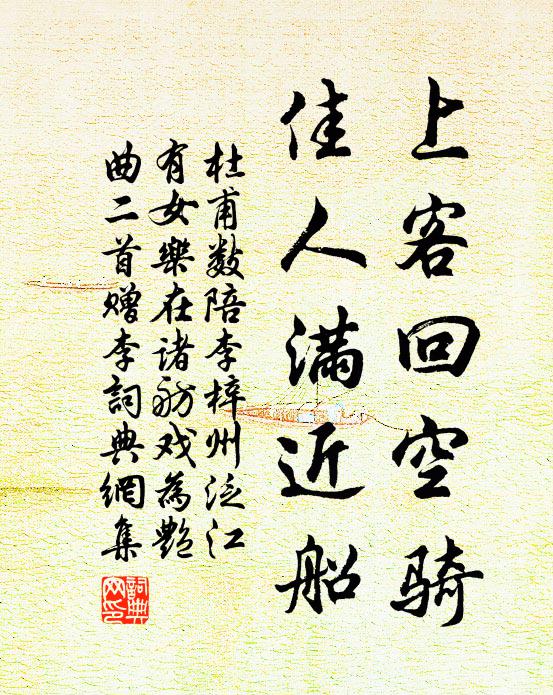 上客回空骑
佳人满近船
杜甫数陪李梓州泛江
有女樂在诸舫戏為艷
曲二首赠李詞典網集
詞典
网印